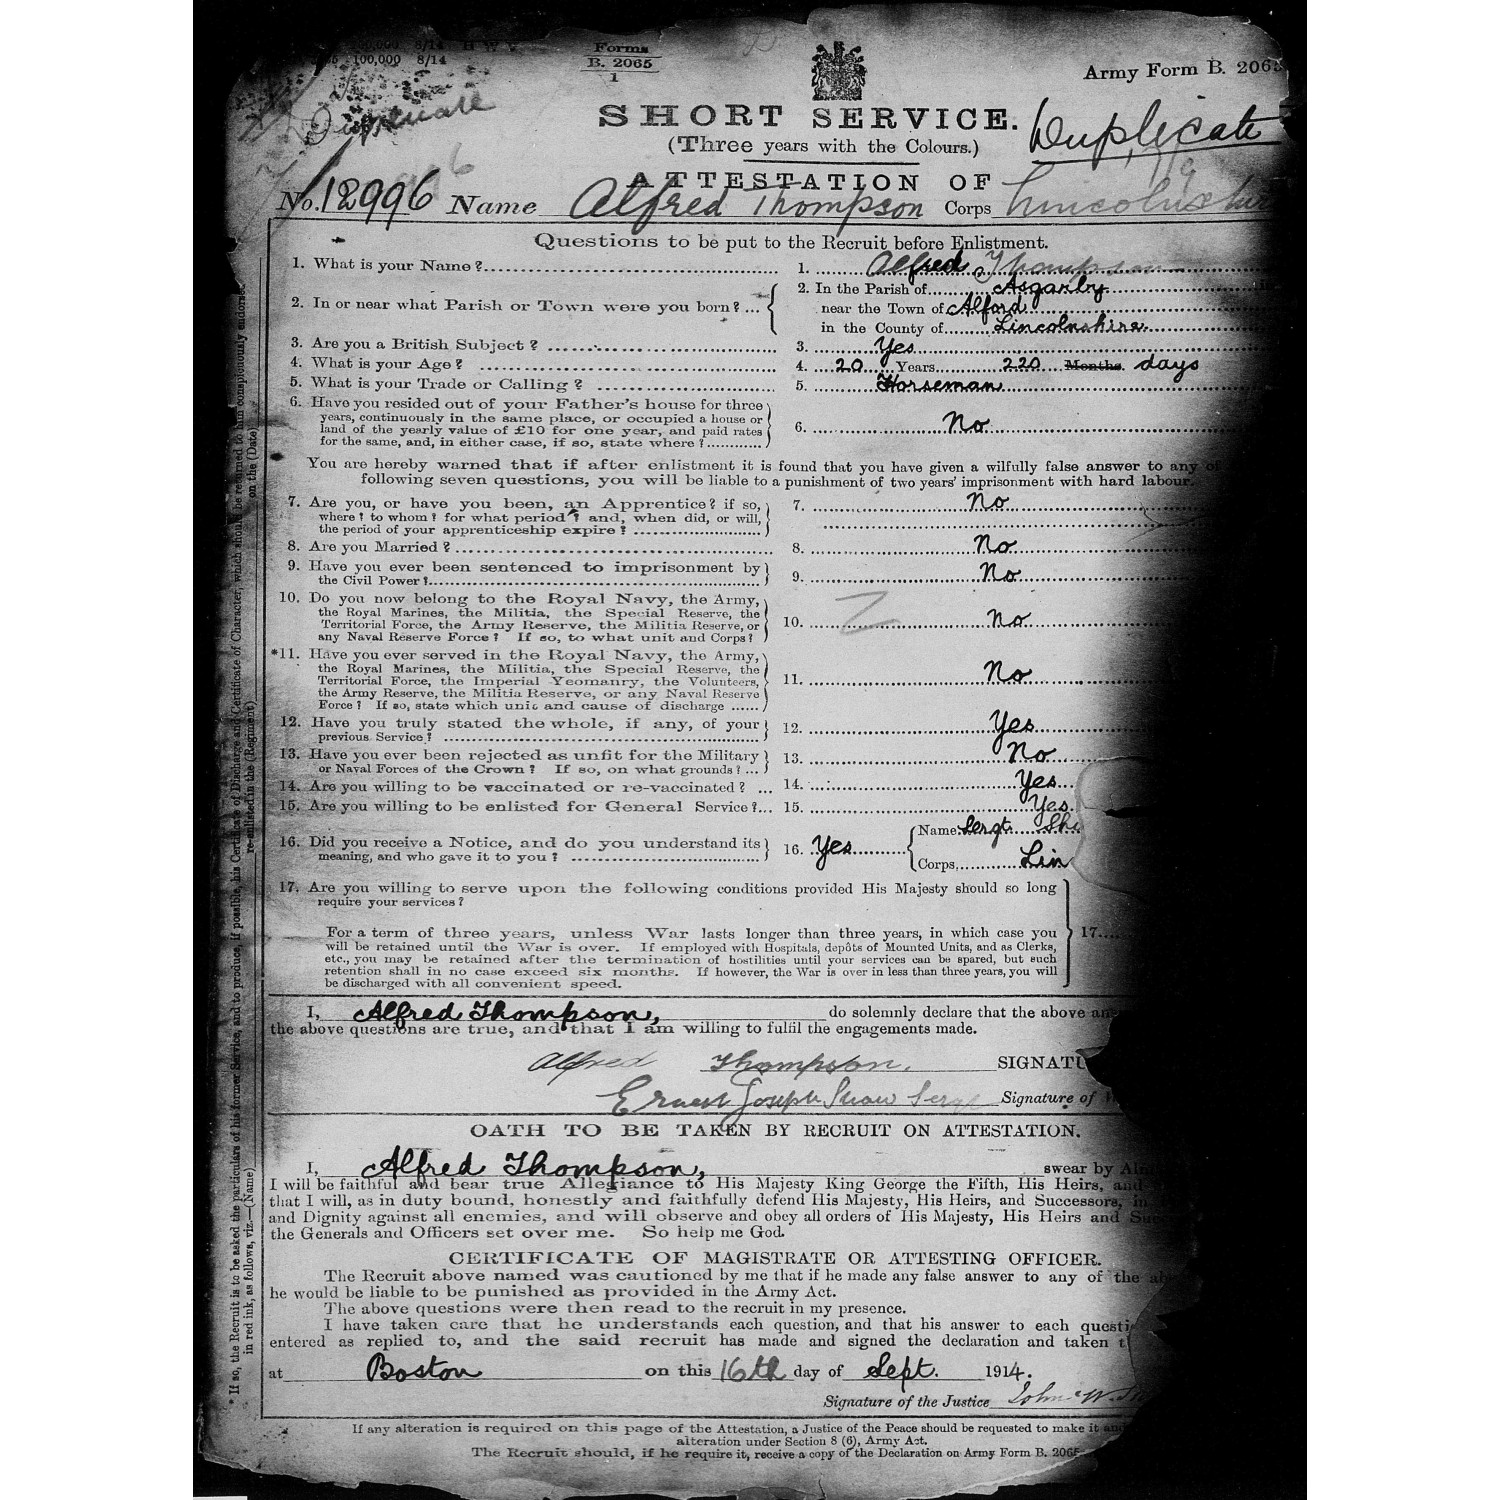 100,000 8/14 H W V
100,000 8/14
Forms
B. 2065
1
Army Form B. 2065
Duplicate
SHORT SERVICE.
Duplicate
(Three years with the Colours.)
ATTESTATION OF
No. 12996 Name Alfred Thompson Corps Lincolnshire
Questions to be put to the Recruit before Enlistment.
1. What is your Name? 1. Alfred Thompson
2. In or near what Parish or Town were you born? ... 2. In the Parish of Asgarby
near the Town of Alford
in the County of Lincolnshire
3. Are you a British Subject? 3. Yes
4. What is your Age? 4. 20 Years 220 Months days
5. What is your Trade or Calling? 5. Horseman
6. Have you resided out of your Father's house for three
years, continuously in the same place, or occupied a house or
land of the yearly value of £10 for one year, and paid rates
for the same, and, in either case, if so, state where? 6. No
You are hereby warned that if after enlistment it is found that you have given a wilfully false answer to any of
following seven questions, you will be liable to a punishment of two years' imprisonment with hard labour.
7. Are you, or have you been, an Apprentice? if so,
where? to whom? for what period? and, when did, or will,
the period of your apprenticeship expire? 7. No
8. Are you Married? 8. No
9. Have you ever been sentenced to imprisonment by
the Civil Power? 9. No
10. Do you now belong to the Royal Navy, the Army,
the Royal Marines, the Militia, the Special Reserve, the
Territorial Force, the Army Reserve, the Militia Reserve, or
any Naval Reserve Force? If so, to what unit and Corps? 10. No
*11. Have you ever served in the Royal Navy, the Army,
the Royal Marines, the Militia, the Special Reserve, the
Territorial Force, the Imperial Yeomanry, the Volunteers,
the Army Reserve, the Militia Reserve, or any Naval Reserve
Force? If so, state which unit and cause of discharge ...... 11. No
12. Have you truly stated the whole, if any, of your
previous Service? 12. Yes
13. Have you ever been rejected as unfit for the Military
or Naval Forces of the Crown? If so, on what grounds? ... 13. No
14. Are you willing to be vaccinated or re-vaccinated? ... 14. Yes
15. Are you willing to be enlisted for General Service?... 15. Yes
16. Did you receive a Notice, and do you understand its
meaning, and who gave it to you? 16. Yes Name Sergt. Sh
Corps Lin
17. Are you willing to serve upon the following conditions provided His Majesty should so long
require your services?
For a term of three years, unless War lasts longer than three years, in which case you
will be retained until the War is over. If employed with Hospitals, depôts of Mounted Units, and as Clerks,
etc., you may be retained after the termination of hostilities until your services can be spared, but such
retention shall in no case exceed six months. If however, the War is over in less than three years, you will
be discharged with all convenient speed. 17.
I, Alfred Thompson, do solemnly declare that the above
the above questions are true, and that I am willing to fulfil the engagements made.
Alfred Thompson. SIGNATU
Ernest Joseph Shaw Sergt Signature of
OATH TO BE TAKEN BY RECRUIT ON ATTESTATION.
I, Alfred Thompson, swear by
I will be faithful and bear true Allegiance to His Majesty King George the Fifth, His Heirs, and
that I will, as in duty bound, honestly and faithfully defend His Majesty, His Heirs, and Successors, in
and Dignity against all enemies, and will observe and obey all orders of His Majesty, His Heirs and
the Generals and Officers set over me. So help me God.
CERTIFICATE OF MAGISTRATE OR ATTESTING OFFICER.
The Recruit above named was cautioned by me that if he made any false answer to any of the
he would be liable to be punished as provided in the Army Act.
The above questions were then read to the recruit in my presence.
I have taken care that he understands each question, and that his answer to each questi
entered as replied to, and the said recruit has made and signed the declaration and taken t
at Boston on this 16th day of Sept. 1914.
Signature of the Justice John W.
If any alteration is required on this page of the Attestation, a Justice of the Peace should be requested to make it
alteration under Section 8 (6), Army Act.
The Recruit should, if he require it, receive a copy of the Declaration on Army Form B. 2065
*If so, the Recruit is to be asked the particulars of his former Service, and to produce, if possible, his Certificate of Discharge and Certificate of Character, which should be returned to him conspicuously endorsed
in red ink, as follows, viz.—(Name) re-enlisted in the (Regiment) on the (Date)